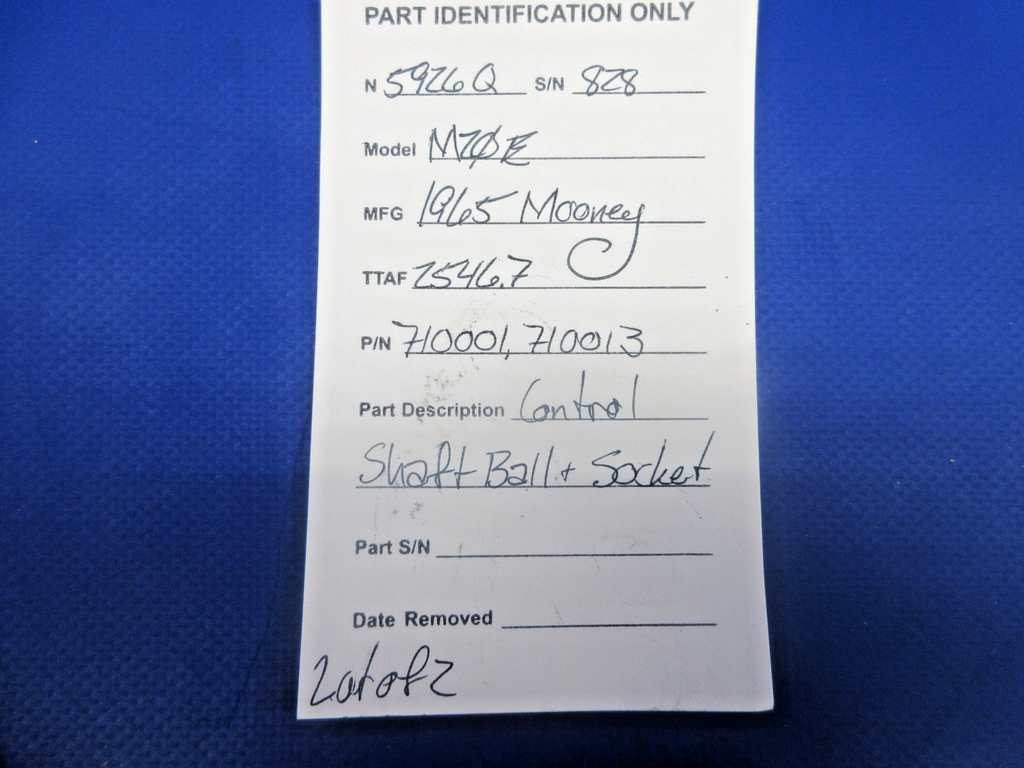 PART IDENTIFICATION ONLY
N 5926Q S/N 828
Model M20E
MFG 1965 Mooney
TTAF 2546.7
P/N 710001, 710013
Part Description Control
Shaft Ball + Socket
Part S/N
Date Removed
2 out of 2